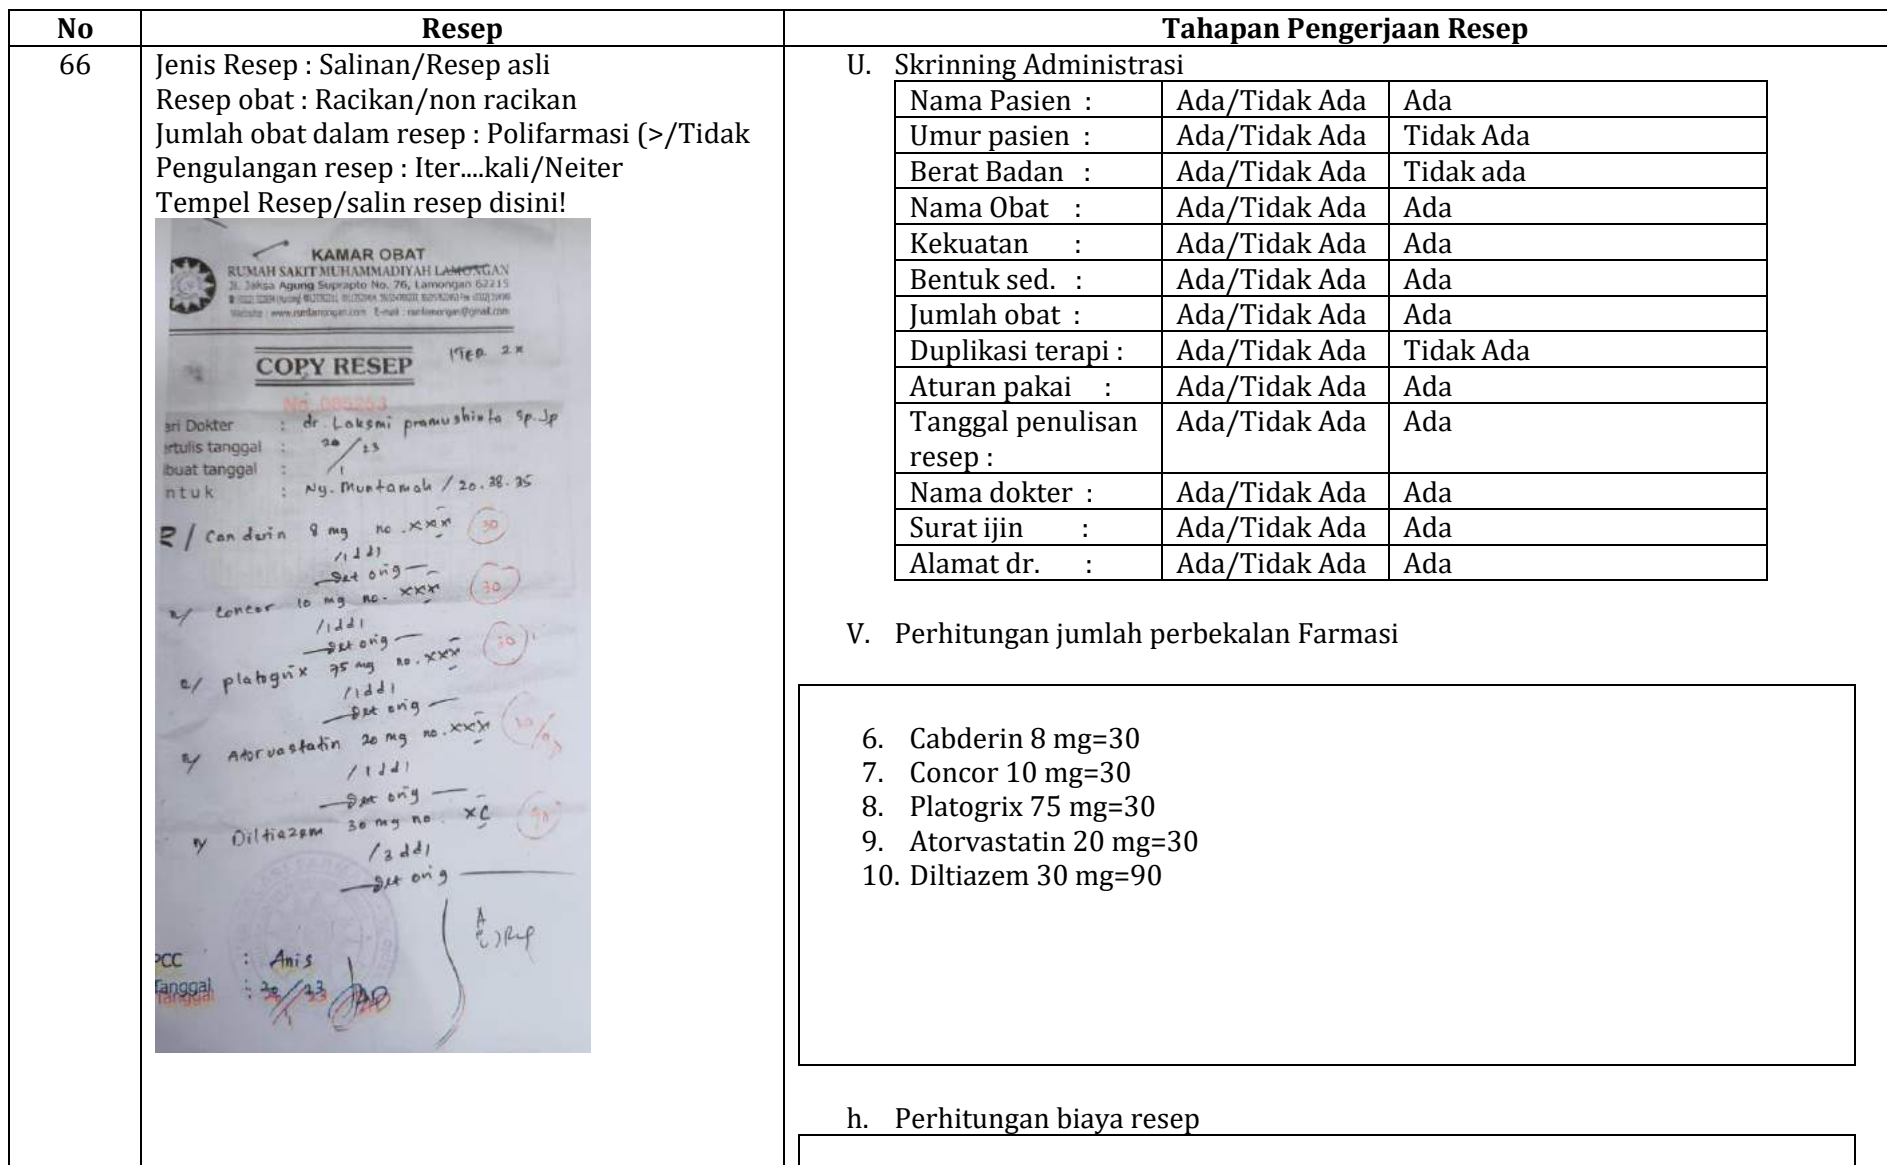 No Resep Tahapan Pengerjaan Resep
66
Jenis Resep : Salinan/Resep asli
Resep obat : Racikan/non racikan
Jumlah obat dalam resep : Polifarmasi (>/Tidak
Pengulangan resep : Iter....kali/Neiter
Tempel Resep/salin resep disini!
KAMAR OBAT
RUMAH SAKIT MUHAMMADIYAH LAMONGAN
Jl. Jaksa Agung Suprapto No. 76, Lamongan 62215
COPY RESEP
ITER 2x
No. 085253
ari Dokter : dr. Laksmi pramushinta Sp. Jp
ertulis tanggal : 20/23
ibuat tanggal : 1
ntuk : Ny. Muntamah / 20.38.35
R/ Canderin 8 mg no. xxx 30
/1dd1
det orig
R/ Concor 10 mg no. xxx 30
/1dd1
det orig
R/ platogrix 75 mg no. xxx 30
/1dd1
det orig
R/ Atorvastatin 20 mg no. xxx
/1dd1
det orig
R/ Diltiazem 30 mg no. xc 90
/3dd1
det orig
PCC : Anis
Tanggal : 20/23
1
U. Skrinning Administrasi
Nama Pasien : Ada/Tidak Ada Ada
Umur pasien : Ada/Tidak Ada Tidak Ada
Berat Badan : Ada/Tidak Ada Tidak ada
Nama Obat : Ada/Tidak Ada Ada
Kekuatan : Ada/Tidak Ada Ada
Bentuk sed. : Ada/Tidak Ada Ada
Jumlah obat : Ada/Tidak Ada Ada
Duplikasi terapi : Ada/Tidak Ada Tidak Ada
Aturan pakai : Ada/Tidak Ada Ada
Tanggal penulisan Ada/Tidak Ada Ada
resep :
Nama dokter : Ada/Tidak Ada Ada
Surat ijin : Ada/Tidak Ada Ada
Alamat dr. : Ada/Tidak Ada Ada
V. Perhitungan jumlah perbekalan Farmasi
6. Cabderin 8 mg=30
7. Concor 10 mg=30
8. Platogrix 75 mg=30
9. Atorvastatin 20 mg=30
10. Diltiazem 30 mg=90
h. Perhitungan biaya resep